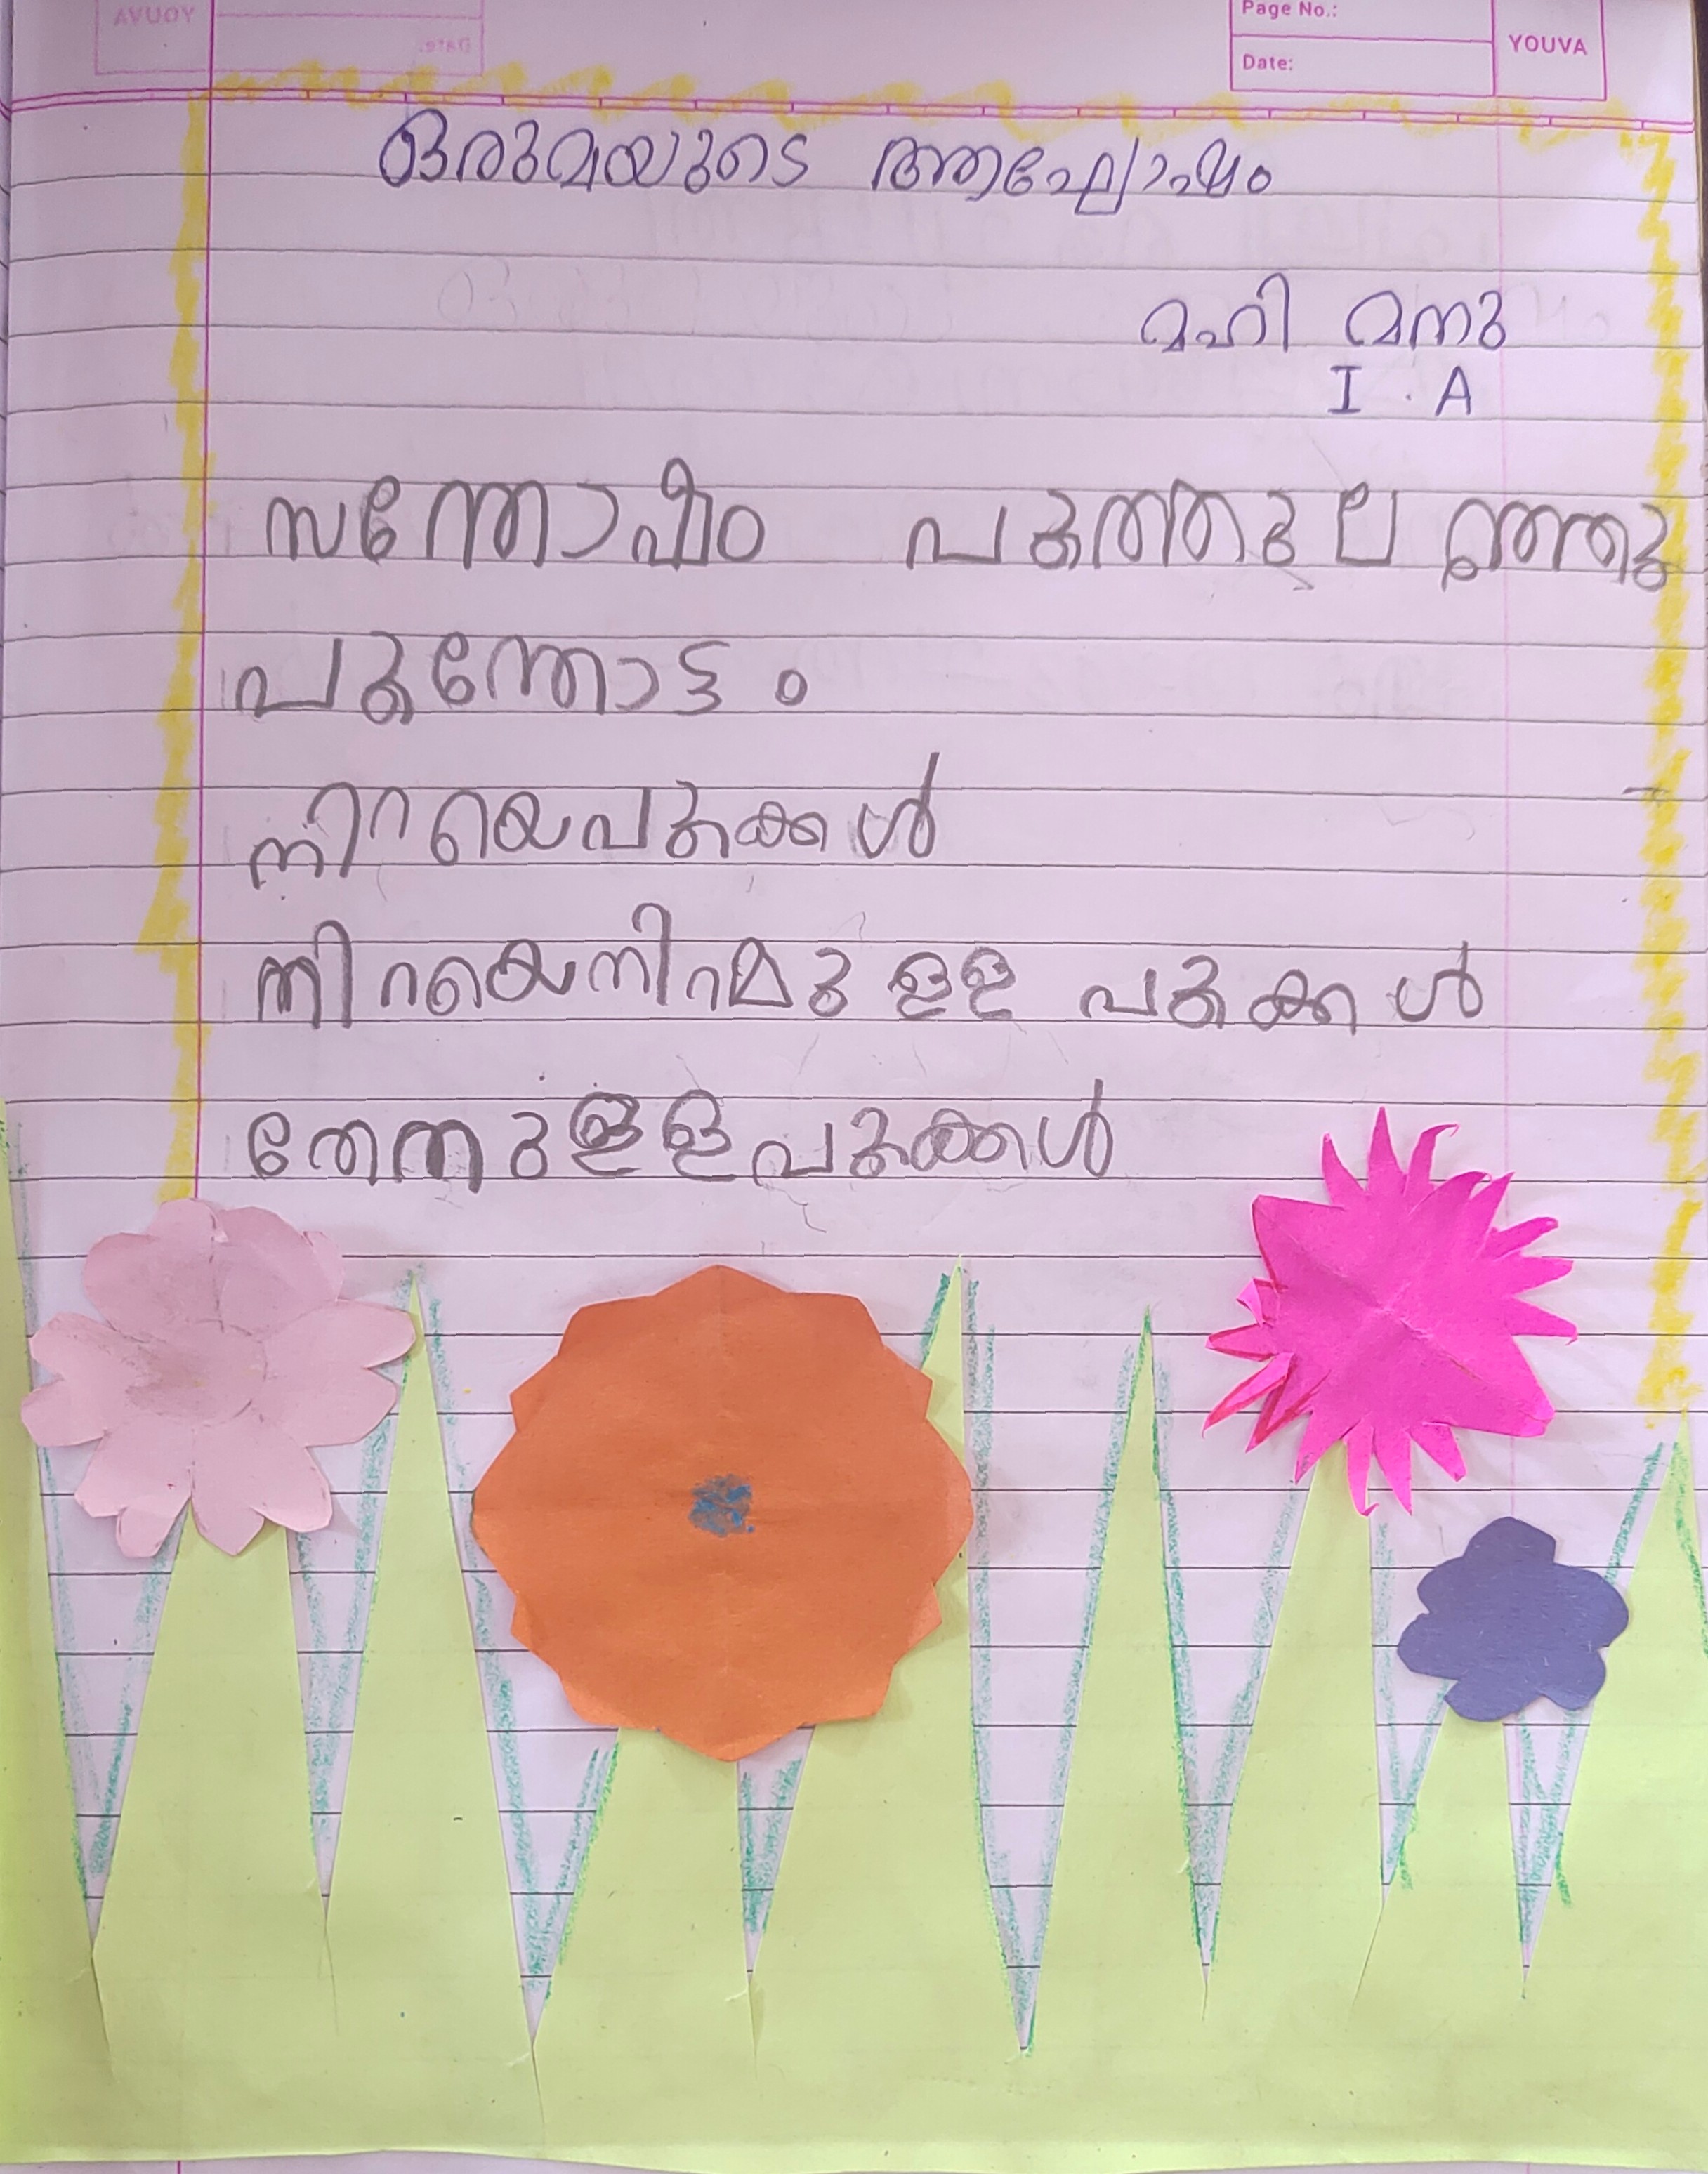 Page No.:
Date:
YOUVA
ഒരുമയുടെ ആഘോഷം
മഹി മനു
I . A
സന്തോഷം പൂത്തുലഞ്ഞു
പൂന്തോട്ടം
നിറയെപൂക്കൾ
നിറയെനിറമുള്ള പൂക്കൾ
തേനുള്ളപൂക്കൾ